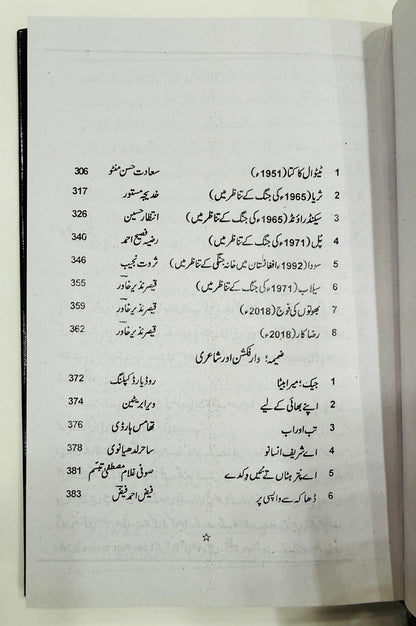 1 ٹیٹوال کا کتا (1951ء) سعادت حسن منٹو 306
2 ثریا (1965ء کی جنگ کے تناظر میں) خدیجہ مستور 317
3 سیکنڈ راؤنڈ (1965ء کی جنگ کے تناظر میں) انتظار حسین 326
4 پُل (1971ء کی جنگ کے تناظر میں) رضیہ فصیح احمد 340
5 سودا (1992ء افغانستان میں خانہ جنگی کے تناظر میں) ثروت نجیب 346
6 سیلاب (1971ء کی جنگ کے تناظر میں) قیصر نذیر خاور 355
7 بھوتوں کی فوج (2018ء) قیصر نذیر خاور 359
8 رضا کار (2018ء) قیصر نذیر خاور 362
ضمیمہ؛ وار فکشن اور شاعری
1 جیک؛ میرا بیٹا روڈیارڈ کپلنگ 372
2 اپنے بھائی کے لیے ویرا بریٹین 374
3 تب اور اب تھامس ہارڈی 376
4 اے شریف انسانو ساحر لدھیانوی 378
5 اے پتر ہٹاں تے نئیں وکدے صوفی غلام مصطفیٰ تبسم 381
6 ڈھاکہ سے واپسی پر فیض احمد فیض 383